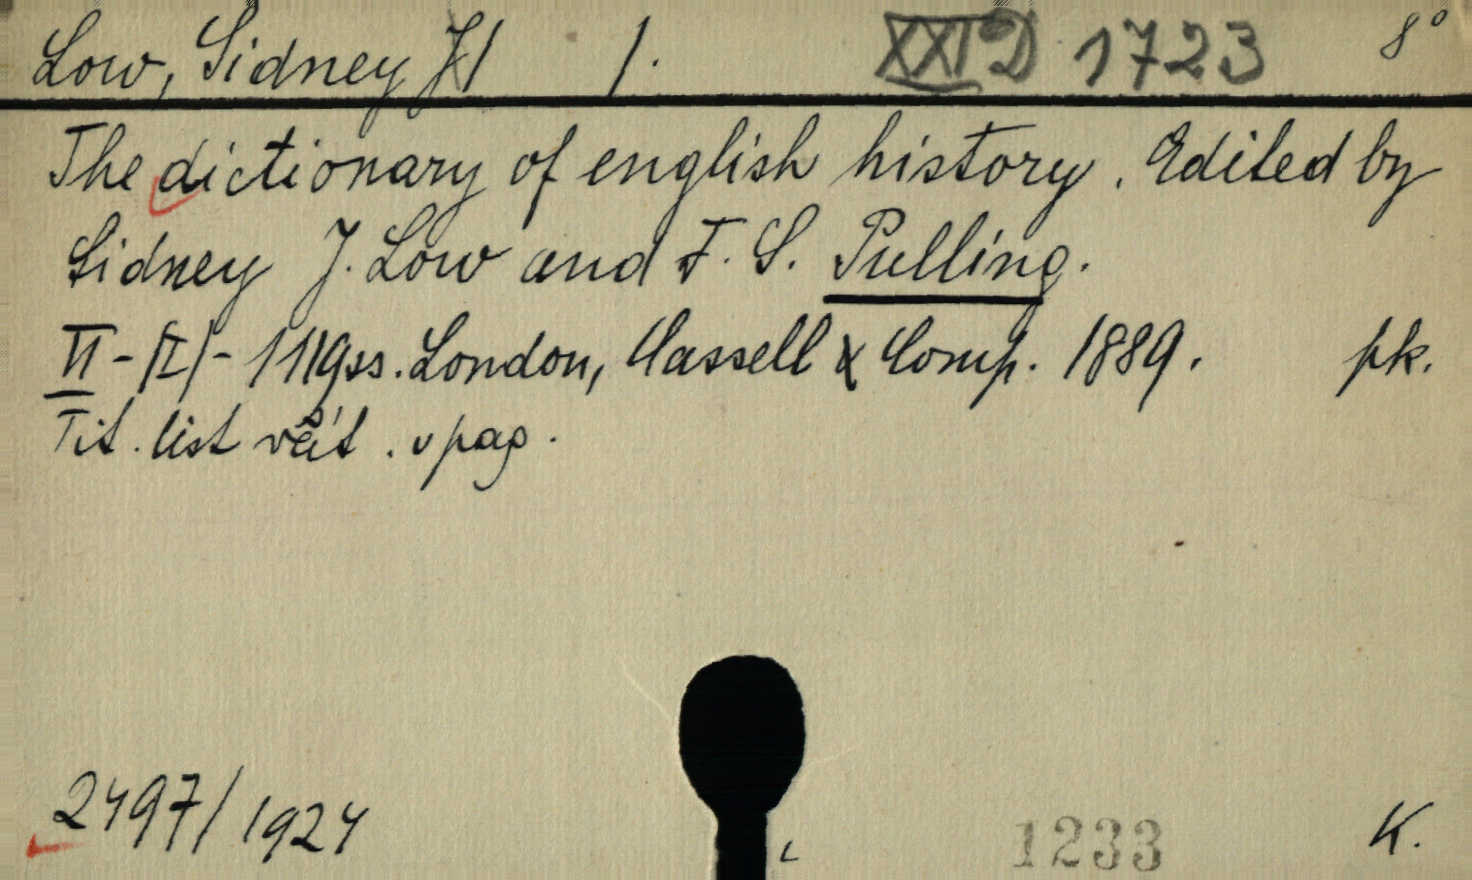 Low, Sidney J/ 1. XXI D 1723 8°
The dictionary of english history. Edited by
Sidney J. Low and F. S. Pulling.
VI - /I/ - 1119ss. London, Cassell & Comp. 1889. pk.
Tit. list včít. v pag.
2497/1924 1233 K.